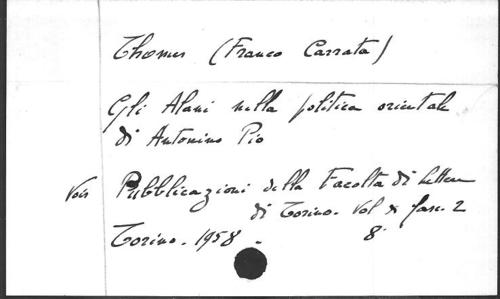 Thomes (Franco Carrata)
Gli Alani nella politica orientale
di Antonino Pio
Voir Pubblicazioni della Facolta di Lettere
di Torino. Vol X fasc. 2
Torino. 1958. 8°